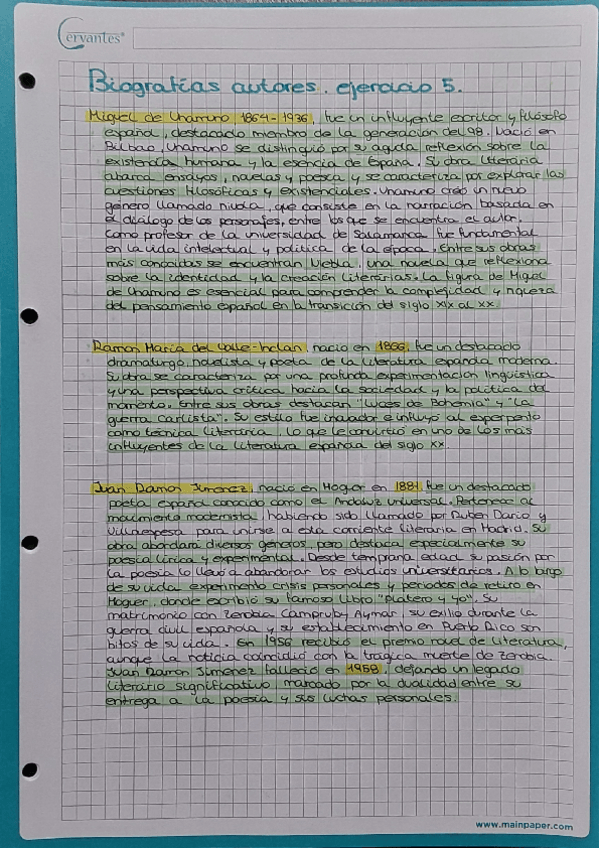 Cervantes®
Biografías autores. ejercicio 5.
Miguel de Unamuno 1864-1936, fue un influyente escritor y filósofo
español, destacado miembro de la generación del 98. Nació en
Bilbao, Unamuno se distinguió por su aguda reflexión sobre la
existencia humana y la esencia de España. Su obra literaria
abarca ensayos, novelas y poesía y se caracteriza por explorar las
cuestiones filosóficas y existenciales. Unamuno creó un nuevo
género llamado nivola, que consiste en la narración basada en
el diálogo de los personajes, entre los que se encuentra el autor.
Como profesor de la universidad de Salamanca fue fundamental
en la vida intelectual y política de la época. Entre sus obras
más conocidas se encuentran Niebla, una novela que reflexiona
sobre la identidad y la creación literarias. La figura de Miguel
de Unamuno es esencial para comprender la complejidad y riqueza
del pensamiento español en la transición del siglo XIX al XX.
Ramon María del Valle-Inclan, nacio en 1866, fue un destacado
dramaturgo, novelista y poeta de la literatura española moderna.
Su obra se caracteriza por una profunda experimentación lingüística
y una perspectiva crítica hacia la sociedad y la política del
momento. Entre sus obras destacan "Luces de Bohemia" y "La
guerra carlista". Su estilo fue inovador e influyó al esperpento
como técnica literaria, lo que le convirtió en uno de los más
influyentes de la literatura española del siglo XX.
Juan Ramon Jimenez, nació en Moguer en 1881, fue un destacado
poeta español conocido como el Andaluz universal. Pertenece al
movimiento modernista, habiendo sido llamado por Ruben Dario y
Villaespesa para unirse a esta corriente literaria en Madrid. Su
obra abordara diversos géneros, pero destaca especialmente su
poesía lírica y experimental. Desde temprana edad su pasión por
la poesía lo llevó a abandonar los estudios universitarios. A lo largo
de su vida experimento crisis personales y periodos de retiro en
Moguer, donde escribió su famoso libro "Platero y yo". Su
matrimonio con Zenobia Campruby Aymar, su exilio durante la
guerra civil española y su establecimiento en Puerto Rico son
hitos de su vida. En 1956 recibió el premio novel de literatura,
aunque la noticia coincidió con la trágica muerte de Zenobia.
Juan Ramon Jimenez falleció en 1958, dejando un legado
literario significativo marcado por la dualidad entre su
entrega a la poesía y sus luchas personales.
www.mainpaper.com